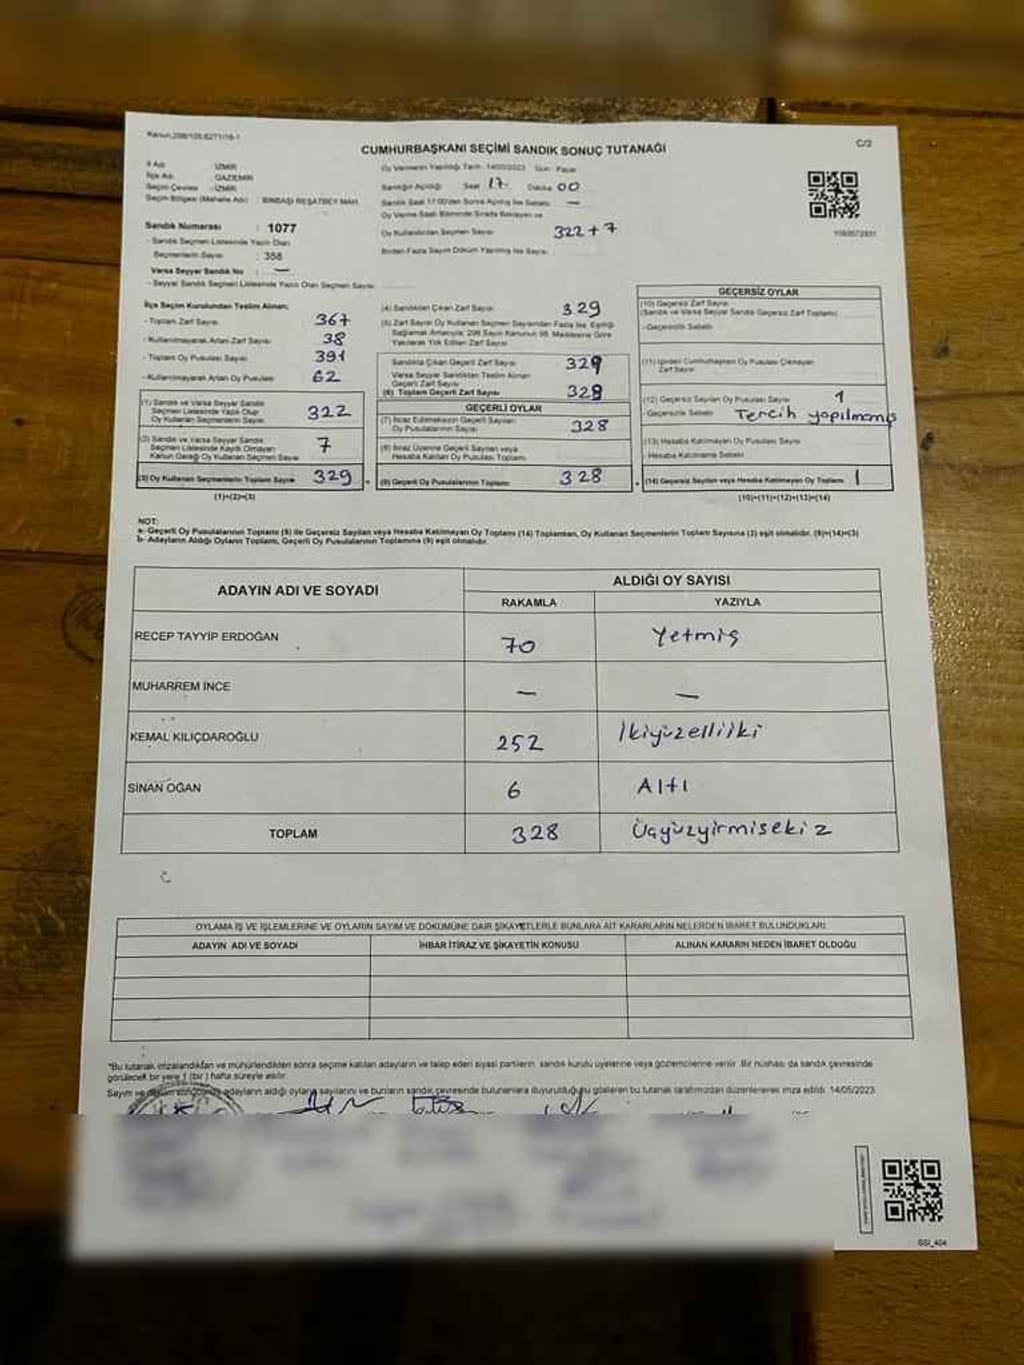 Kanun:298/105,6271/16-1
C/2
CUMHURBAŞKANI SEÇİMİ SANDIK SONUÇ TUTANAĞI
İl Adı : İZMİR
İlçe Adı : GAZİEMİR
Seçim Çevresi : İZMİR
Seçim Bölgesi (Mahalle Adı) : BİNBAŞI REŞATBEY MAH.
Sandık Numarası : 1077
- Sandık Seçmen Listesinde Yazılı Olan
Seçmenlerin Sayısı : 358
Varsa Seyyar Sandık No : —
- Seyyar Sandık Seçmen Listesinde Yazılı Olan Seçmen Sayısı:
Oy Vermenin Yapıldığı Tarih: 14/05/2023 Gün: Pazar
Sandığın Açıldığı Saat 17 Dakika 00
Sandık Saat 17:00'den Sonra Açılmış İse Sebebi: —
Oy Verme Saati Bitiminde Sırada Bekleyen ve
Oy Kullandırılan Seçmen Sayısı: 322+7
Birden Fazla Sayım Döküm Yapılmış İse Sayısı:
İlçe Seçim Kurulundan Teslim Alınan;
- Toplam Zarf Sayısı 367
- Kullanılmayarak Artan Zarf Sayısı 38
- Toplam Oy Pusulası Sayısı 391
- Kullanılmayarak Artan Oy Pusulası 62
(1) Sandık ve Varsa Seyyar Sandık
Seçmen Listesinde Yazılı Olup
Oy Kullanan Seçmenlerin Sayısı 322
(2) Sandık ve Varsa Seyyar Sandık
Seçmen Listesinde Kayıtlı Olmayan
Kanun Gereği Oy Kullanan Seçmen Sayısı 7
(3) Oy Kullanan Seçmenlerin Toplam Sayısı 329
(1)+(2)=(3)
(4) Sandıktan Çıkan Zarf Sayısı 329
(5) Zarf Sayısı Oy Kullanan Seçmen Sayısından Fazla İse, Eşitliği
Sağlamak Amacıyla, 298 Sayılı Kanunun 98. Maddesine Göre
Yakılarak Yok Edilen Zarf Sayısı:
Sandıkta Çıkan Geçerli Zarf Sayısı 329
Varsa Seyyar Sandıktan Teslim Alınan
Geçerli Zarf Sayısı
(6) Toplam Geçerli Zarf Sayısı 328
GEÇERLİ OYLAR
(7) İtiraz Edilmeksizin Geçerli Sayılan
Oy Pusulalarının Sayısı 328
(8) İtiraz Üzerine Geçerli Sayılan veya
Hesaba Katılan Oy Pusulası Toplamı
(9) Geçerli Oy Pusulalarının Toplamı: 328
GEÇERSİZ OYLAR
(10) Geçersiz Zarf Sayısı
(Sandık ve Varsa Seyyar Sandık Geçersiz Zarf Toplamı)
- Geçersizlik Sebebi
(11) İçinden Cumhurbaşkanı Oy Pusulası Çıkmayan
Zarf Sayısı
(12) Geçersiz Sayılan Oy Pusulası Sayısı 1
- Geçersizlik Sebebi Tercih yapılmamış
(13) Hesaba Katılmayan Oy Pusulası Sayısı
- Hesaba Katılmama Sebebi
(14) Geçersiz Sayılan veya Hesaba Katılmayan Oy Toplamı 1
(10)+(11)+(12)+(13)=(14)
NOT:
a- Geçerli Oy Pusulalarının Toplamı (9) ile Geçersiz Sayılan veya Hesaba Katılmayan Oy Toplamı (14) Toplamları, Oy Kullanan Seçmenlerin Toplam Sayısına (3) eşit olmalıdır. (9)+(14)=(3)
b- Adayların Aldığı Oyların Toplamı, Geçerli Oy Pusulalarının Toplamına (9) eşit olmalıdır.
ADAYIN ADI VE SOYADI
ALDIĞI OY SAYISI
RAKAMLA YAZIYLA
RECEP TAYYİP ERDOĞAN 70 Yetmiş
MUHARREM İNCE — —
KEMAL KILIÇDAROĞLU 252 İkiyüzelliiki
SİNAN OĞAN 6 Altı
TOPLAM 328 Üçyüzyirmisekiz
OYLAMA İŞ VE İŞLEMLERİNE VE OYLARIN SAYIM VE DÖKÜMÜNE DAİR ŞİKAYETLERLE BUNLARA AİT KARARLARIN NELERDEN İBARET BULUNDUKLARI
ADAYIN ADI VE SOYADI İHBAR İTİRAZ VE ŞİKAYETİN KONUSU ALINAN KARARIN NEDEN İBARET OLDUĞU
*Bu tutanak imzalandıktan ve mühürlendikten sonra seçime katılan adayların ve talep eden siyasi partilerin sandık kurulu üyelerine veya gözlemcilerine verilir. Bir nüshası da sandık çevresinde
görülecek bir yere 1 (bir) hafta süreyle asılır.
Sayım ve döküm sonucunda adayların aldığı oyların sayılarını ve bunların sandık çevresinde bulunanlara duyurulduğunu gösteren bu tutanak tarafımızdan düzenlenerek imza edildi. 14/05/2023
SSI_404